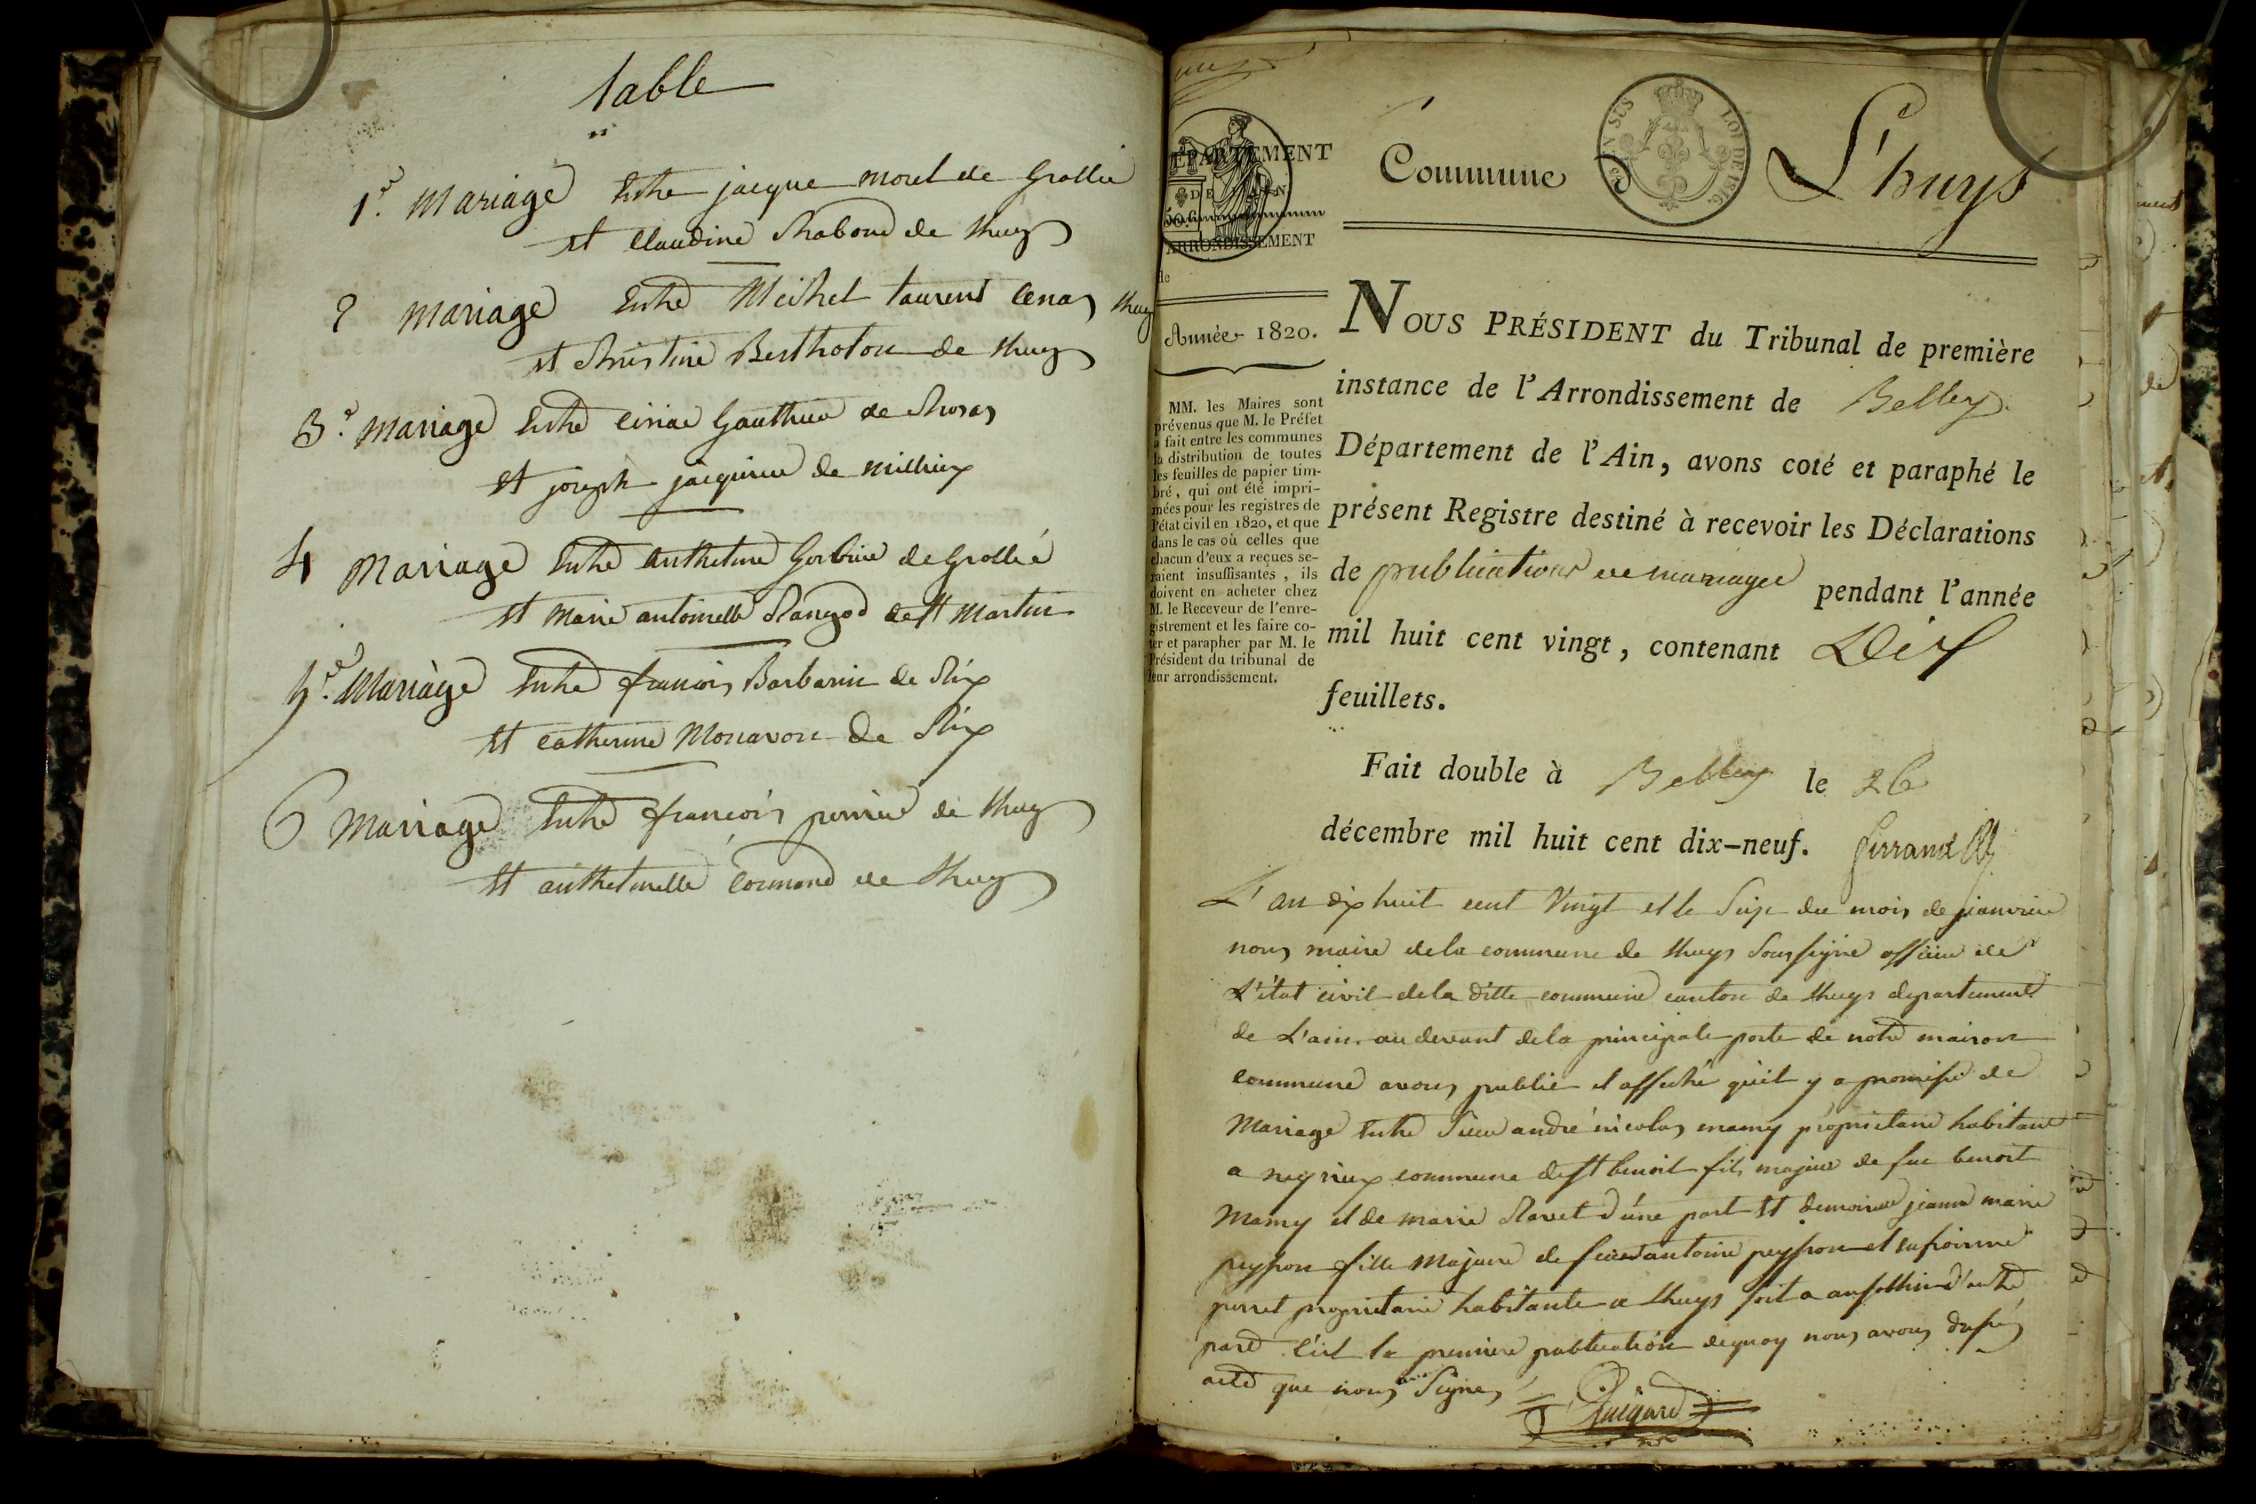 table
1.e Mariage Entre jacque morel de Grollée
et Claudine Chaboud de Lhuys
2 Mariage Entre Michel Laurent Cenas Lhuys
et Christine Bertholon de Lhuys
3.e Mariage Entre Gauthier de
et joseph de
4 Mariage Entre Anthelme Gorbier de Grollée
et Marie antoinette de St Martin
5.e Mariage Entre françois Barbarin de
et Catherine Monavon de
6 Mariage Entre françois perrier de Lhuys
et anthelmette de Lhuys
DÉPARTEMENT
DE L'AIN.
ARRONDISSEMENT
de
Année 1820.
MM. les Maires sont
prévenus que M. le Préfet
a fait entre les communes
la distribution de toutes
les feuilles de papier tim-
bré, qui ont été impri-
mées pour les registres de
l'état civil en 1820, et que
dans le cas où celles que
chacun d'eux a reçues se-
raient insuffisantes, ils
doivent en acheter chez
M. le Receveur de l'enre-
gistrement et les faire co-
ter et parapher par M. le
Président du tribunal de
leur arrondissement.
Commune D L'huys
EN SUS LOI DE 1816
NOUS PRÉSIDENT du Tribunal de première
instance de l'Arrondissement de Belley
Département de l'Ain, avons coté et paraphé le
présent Registre destiné à recevoir les Déclarations
de publications de mariages pendant l'année
mil huit cent vingt, contenant Dix
feuillets.
Fait double à Belley le 26
décembre mil huit cent dix-neuf.
L'an dix huit cent Vingt et le Seize du mois de janvier
nous maire de la commune de Lhuys Soussigné officier de
L'état civil de la ditte commune canton de Lhuys departement
de L'ain. au devant de la principale porte de notre maison
commune avons publié et affiché qu'il y a promesse de
Mariage Entre Sieur andré nicolas mamy propriétaire habitant
a commune de St benoit fils majeur de feu benoit
Mamy et de marie d'une part Et demoiselle jeanne marie
peysson fille Majeure de antoine peysson et
perret propriétaire habitante a Lhuys d'autre
part C'est la première publication dequoy nous avons dressés
acte que nous avons Signés